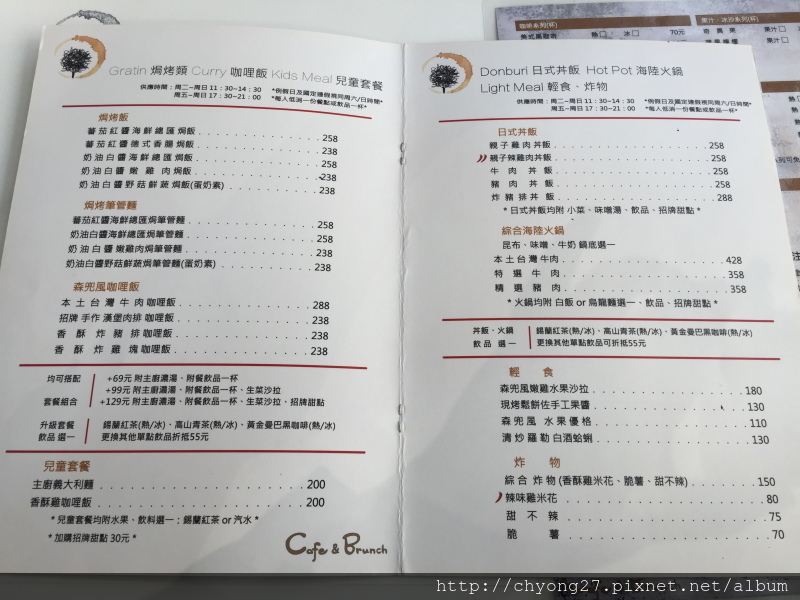 Gratin 焗烤類 Curry 咖哩飯 Kids Meal 兒童套餐
供應時間：周二~周日 11：30~14：30 *例假日及國定連假視同周六/日時間*
周五~周日 17：30~21：00 *每人低消一份餐點或飲品一杯*
焗烤飯
蕃茄紅醬海鮮總匯焗飯 258
蕃茄紅醬德式香腸焗飯 238
奶油白醬海鮮總匯焗飯 258
奶油白醬 嫩雞肉焗飯 238
奶油白醬野菇鮮蔬焗飯(蛋奶素) 238
焗烤筆管麵
蕃茄紅醬海鮮總匯焗筆管麵 258
奶油白醬海鮮總匯焗筆管麵 258
奶油白醬 嫩雞肉焗筆管麵 238
奶油白醬野菇鮮蔬焗筆管麵(蛋奶素) 238
森兜風咖哩飯
本土台灣牛肉咖哩飯 288
招牌手作漢堡肉排咖哩飯 238
香酥炸豬排咖哩飯 238
香酥炸雞塊咖哩飯 238
均可搭配
套餐組合
+69元 附主廚濃湯、附餐飲品一杯
+99元 附主廚濃湯、附餐飲品一杯、生菜沙拉
+129元 附主廚濃湯、附餐飲品一杯、生菜沙拉、招牌甜點
升級套餐
飲品 選一
錫蘭紅茶(熱/冰)、高山青茶(熱/冰)、黃金曼巴黑咖啡(熱/冰)
更換其他單點飲品折抵55元
兒童套餐
主廚義大利麵 200
香酥雞咖哩飯 200
*兒童套餐均附水果、飲料選一：錫蘭紅茶 or 汽水*
*加購招牌甜點 30元*
Cafe & Brunch
Donburi 日式丼飯 Hot Pot 海陸火鍋
Light Meal 輕食、炸物
供應時間：周二~周日 11：30~14：30 *例假日及國定連假視同周六/日時間*
周五~周日 17：30~21：00 *每人低消一份餐點或飲品一杯*
日式丼飯
親子雞肉丼飯 258
親子辣雞肉丼飯 258
牛肉丼飯 258
豬肉丼飯 258
炸豬排丼飯 288
*日式丼飯均附 小菜、味噌湯、飲品、招牌甜點*
綜合海陸火鍋
昆布、味噌、牛奶 鍋底選一
本土台灣牛肉 428
特選牛肉 358
精選豬肉 358
*火鍋均附 白飯 or 烏龍麵選一、飲品、招牌甜點*
丼飯、火鍋
飲品 選一
錫蘭紅茶(熱/冰)、高山青茶(熱/冰)、黃金曼巴黑咖啡(熱/冰)
更換其他單點飲品可折抵55元
輕食
森兜風嫩雞水果沙拉 180
現烤鬆餅佐手工果醬 130
森兜風 水果優格 110
清炒羅勒白酒蛤蜊 130
炸物
綜合炸物(香酥雞米花、脆薯、甜不辣) 150
辣味雞米花 80
甜不辣 75
脆薯 70
咖啡系列(杯)
美式黑咖啡 熱□ 冰□ 70元
果汁
http://chyong27.pixnet.net/album